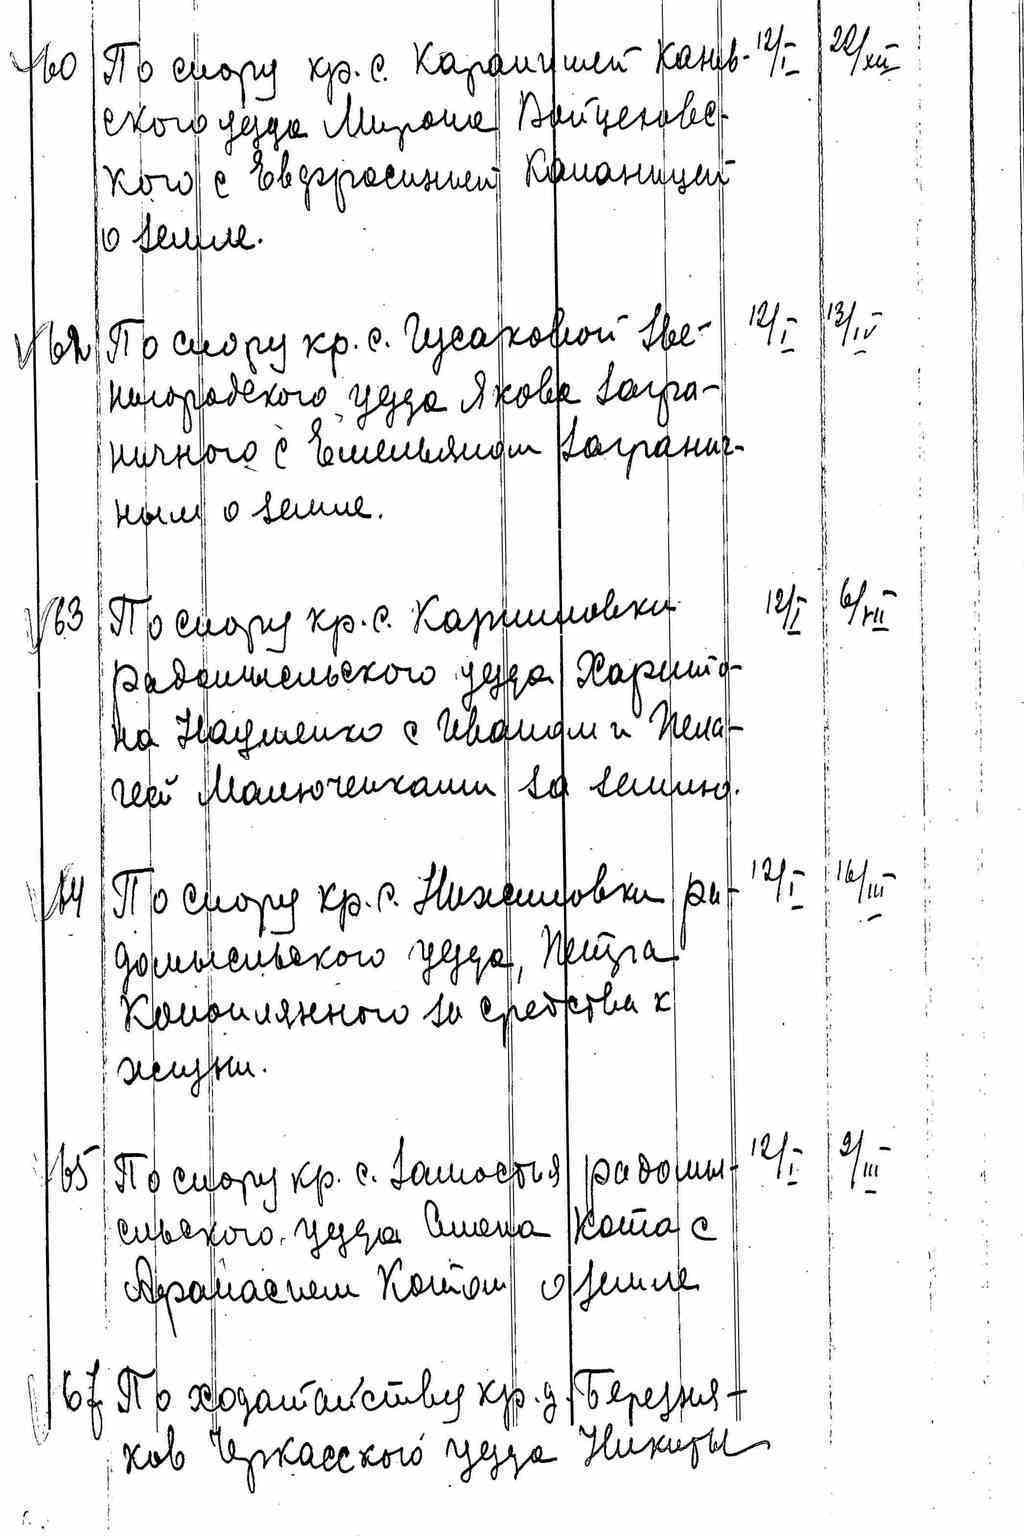 60 По спору кр. с. Карапишей Канев- 12/I 22/XII
ского уезда Мирона Войценовс-
кого с Евфросинией Капаницей
о земле.
62 По спору кр. с. Гусаковой Зве- 12/I 13/IV
нигородского уезда Якова Загра-
ничного с Емельяном Заграnич-
ным о земле.
63 По спору кр. с. Карпиловки 12/I 6/VII
радомысльского уезда Харито-
на Науменко с Иваном и Пела-
геей Малюченками за землю.
64 По спору кр. с. Нижиловки ра- 12/I 16/III
домысльского уезда, Петра
Коноплянного за средства к
жизни.
65 По спору кр. с. Замостья радомы- 12/I 2/III
сльского уезда Семена Кота с
Афанасием Котом о земле
67 По ходатайству кр. д. Березня-
ков Черкасского уезда Никиты